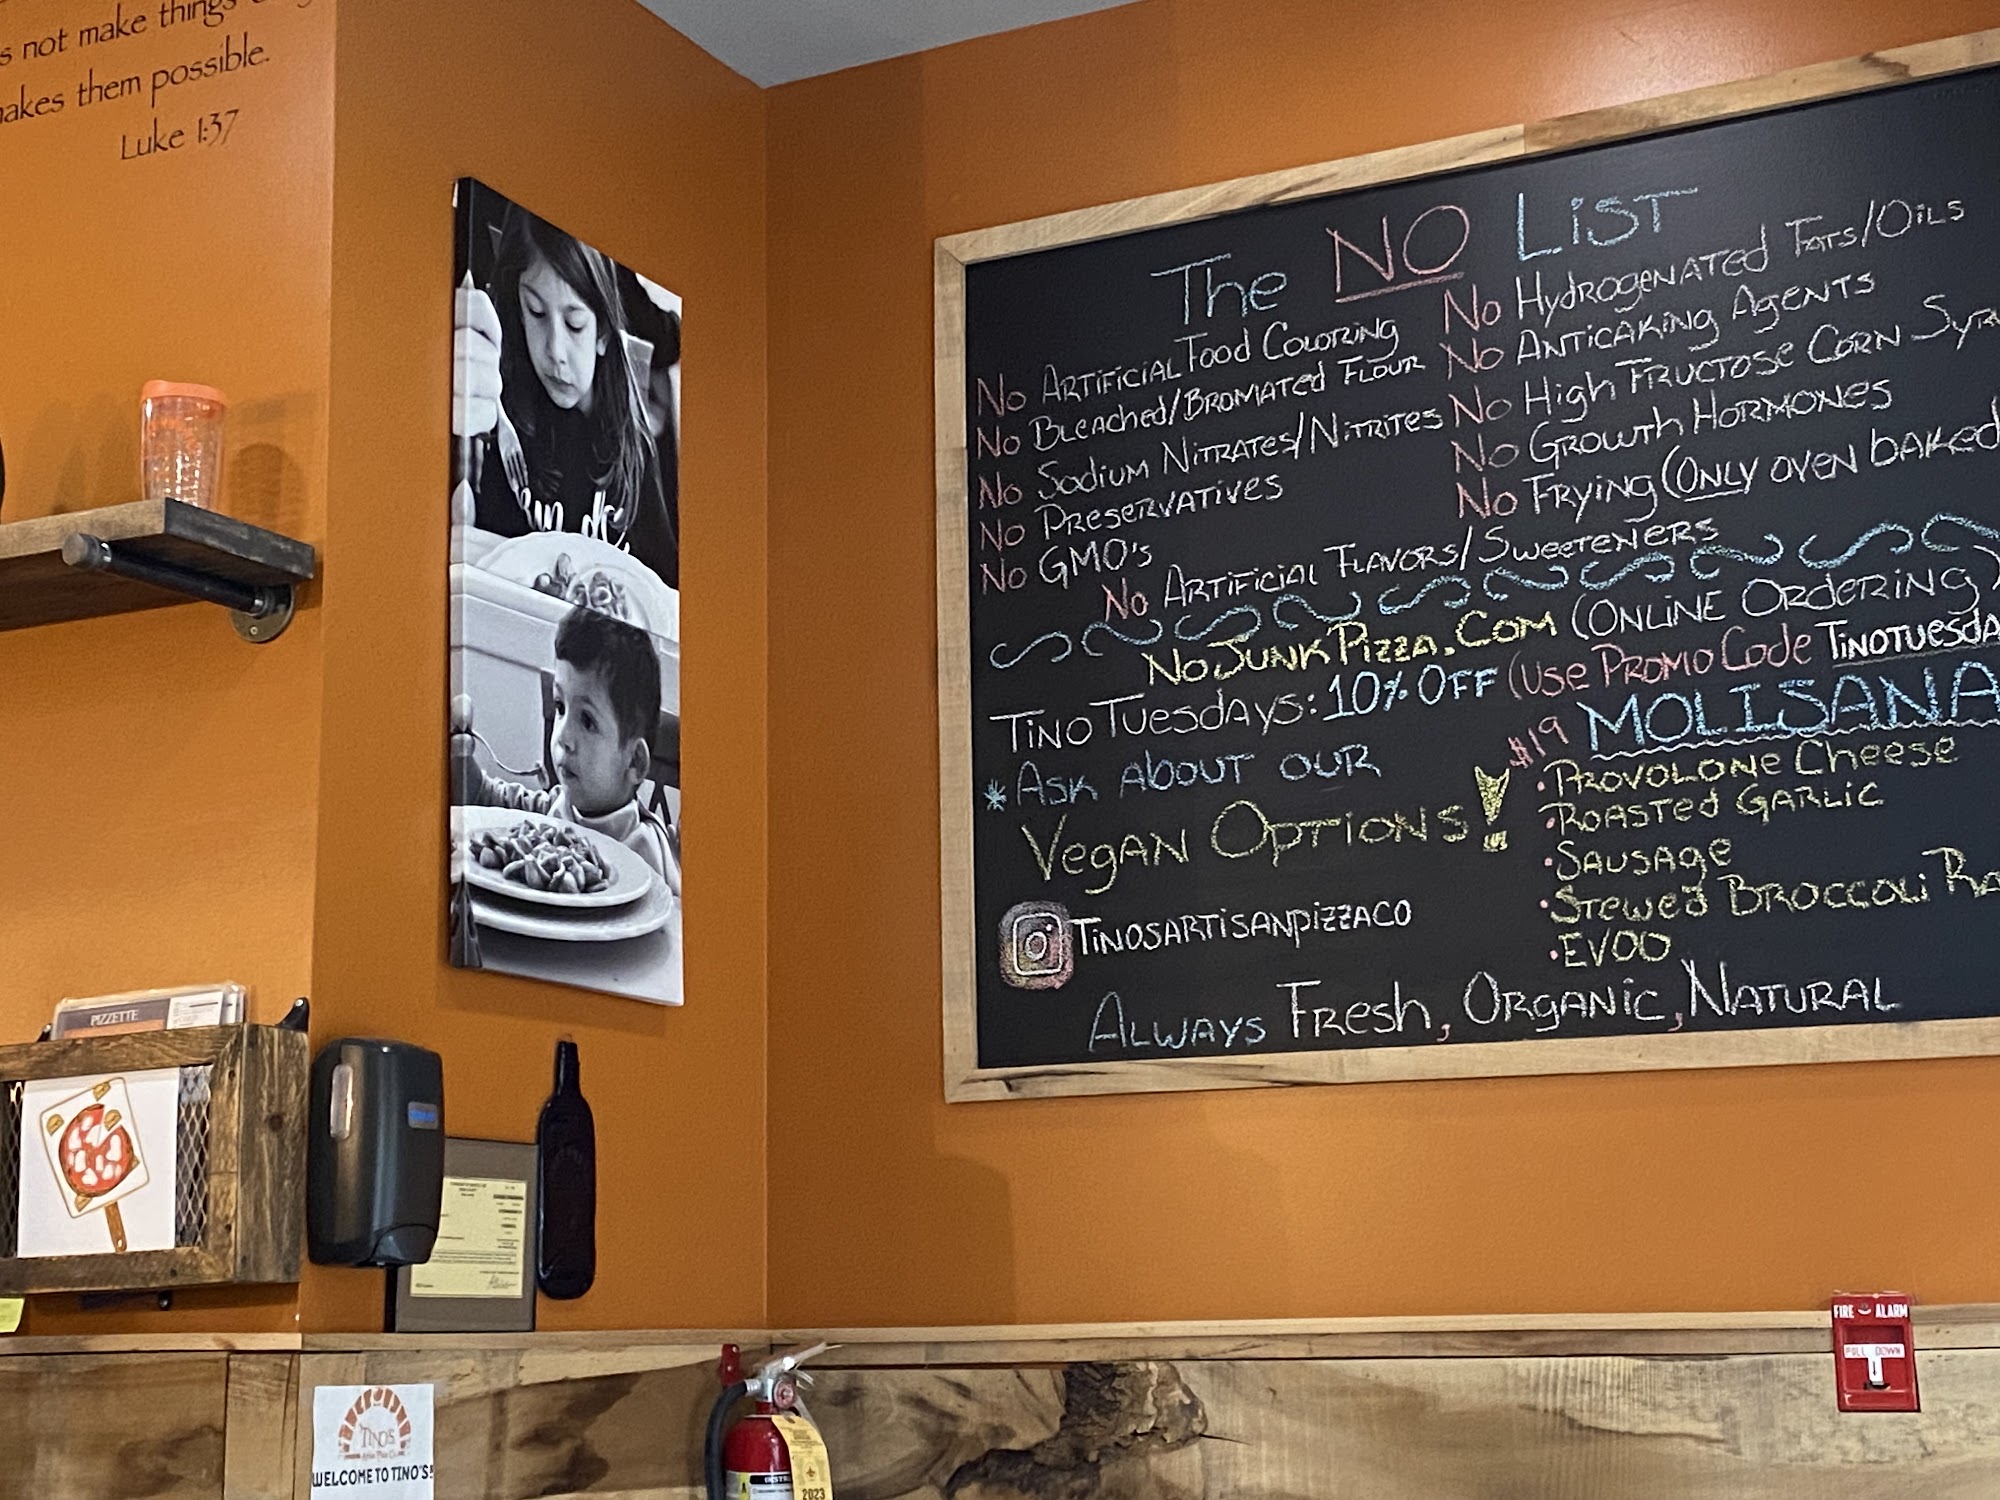 s not make things
akes them possible.
Luke 1:37
The NO LiST
No Artificial Food Coloring
No Bleached/Bromated Flour
No Sodium Nitrates/Nitrites
No Preservatives
No GMO's
No Hydrogenated Fats/Oils
No Anticaking Agents
No High Fructose Corn Syru
No Growth Hormones
No Frying (Only oven baked
No Artificial Flavors/Sweeteners
NoJunkPizza.Com (Online Ordering)
Tino Tuesdays: 10% OFF (Use Promo Code TinoTuesda
*Ask about our
Vegan Options!
TinosArtisanpizzaco
$19 MOLISANA
·Provolone Cheese
·Roasted Garlic
·Sausage
·Stewed Broccoli Ra
·EVOO
Always Fresh, Organic, Natural
PIZZETTE
FIRE ALARM
PULL DOWN
TINO'S
WELCOME TO TINO'S!
2023